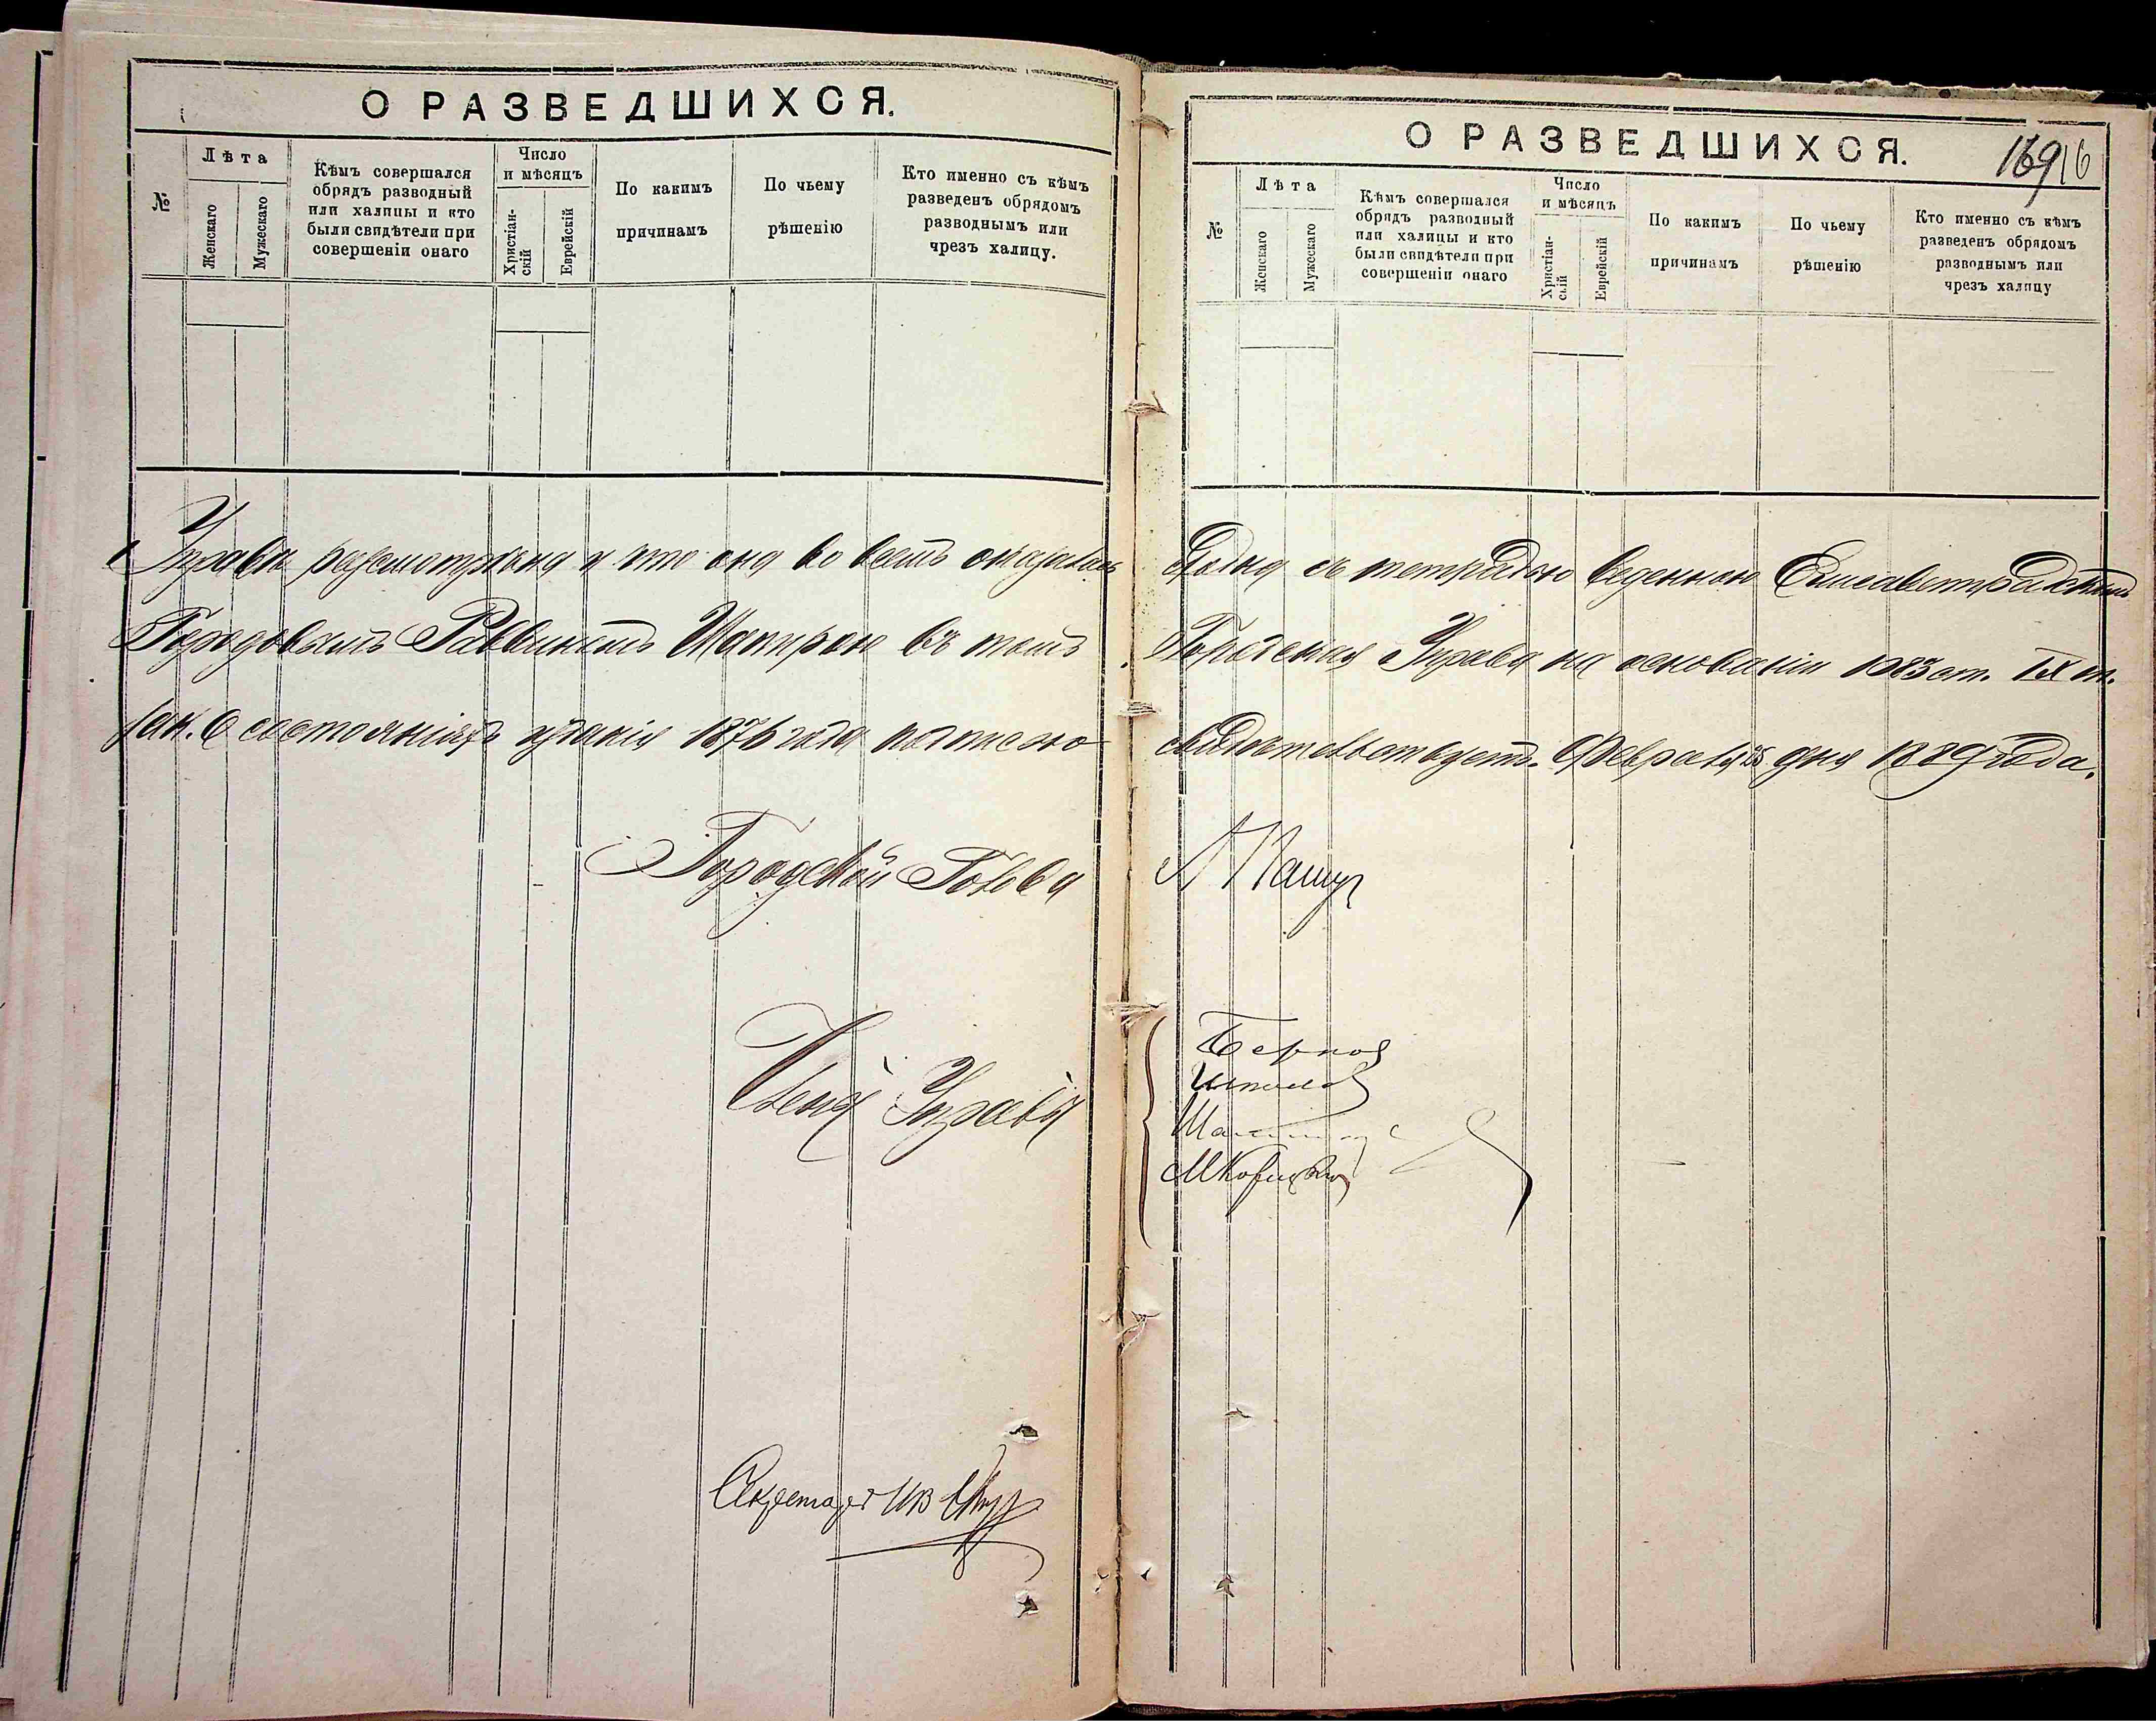 О РАЗВЕДШИХСЯ.
№
Лѣта
Женскаго
Мужескаго
Кѣмъ совершался
обрядъ разводный
или халицы и кто
были свидѣтели при
совершеніи онаго
Число
и мѣсяцъ
Христіан-
скій
Еврейскій
По какимъ
причинамъ
По чьему
рѣшенію
Кто именно съ кѣмъ
разведенъ обрядомъ
разводнымъ или
чрезъ халицу.
Управы разсмотрѣна и что она во всемъ оказалась
Городовымъ Раввиномъ Шапиро въ томъ
Зак. О состояніяхъ изданія 1876 года подписью
Городской Голова
Члены Управы
Секретарь
О РАЗВЕДШИХСЯ.
169
16
№
Лѣта
Женскаго
Мужескаго
Кѣмъ совершался
обрядъ разводный
или халицы и кто
были свидѣтели при
совершеніи онаго
Число
и мѣсяцъ
Христіан-
скій
Еврейскій
По какимъ
причинамъ
По чьему
рѣшенію
Кто именно съ кѣмъ
разведенъ обрядомъ
разводнымъ или
чрезъ халицу
сходна съ тетрадью веденною Елисаветградскимъ
Городская Управа на основаніи 1083 ст. IX т.
свидѣтельствуетъ. Февраля дня 1889 года.
Пашу